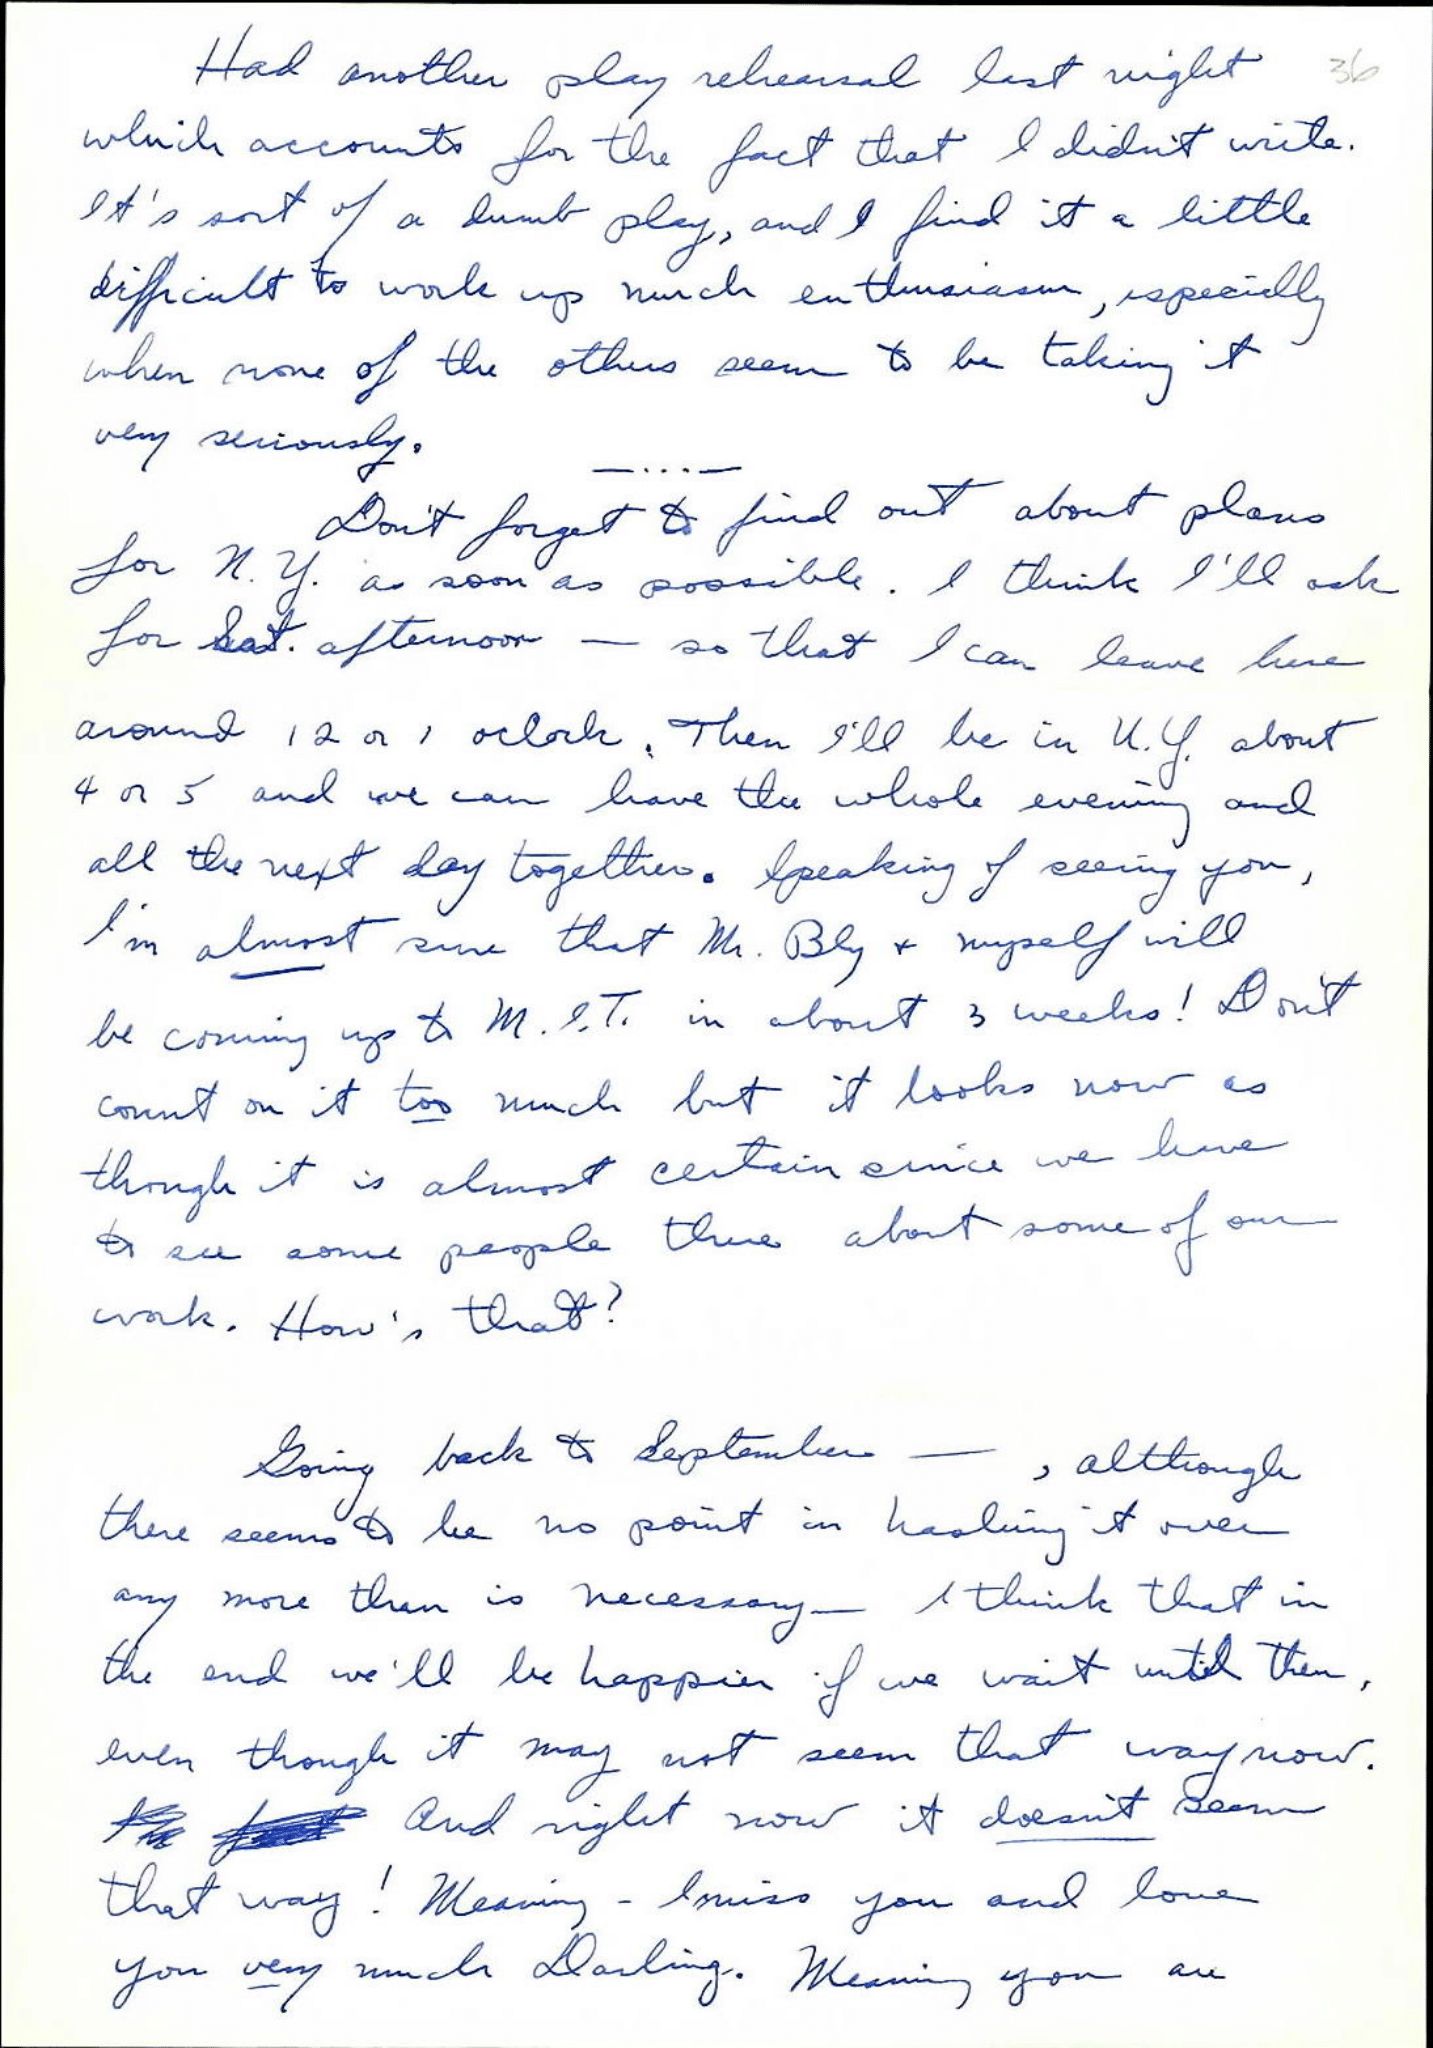 Had another play rehearsal last night 36
which accounts for the fact that I didn't write.
It's sort of a dumb play, and I find it a little
difficult to work up much enthusiasm, especially
when none of the others seem to be taking it
very seriously.
—...—
Don't forget to find out about plans
for N.Y. as soon as possible. I think I'll ask
for Sat. afternoon — so that I can leave here
around 12 or 1 oclock. Then I'll be in N.Y. about
4 or 5 and we can have the whole evening and
all the next day together. Speaking of seeing you,
I'm almost sure that Mr. Bly + myself will
be coming up to M.I.T. in about 3 weeks! Don't
count on it too much but it looks now as
though it is almost certain since we have
to see some people there about some of our
work. How's that?
Going back to September — , although
there seems to be no point in hashing it over
any more than is necessary — I think that in
the end we'll be happier if we wait until then,
even though it may not seem that way now.
And right now it doesn't seem
that way! Meaning - I miss you and love
you very much Darling. Meaning you are